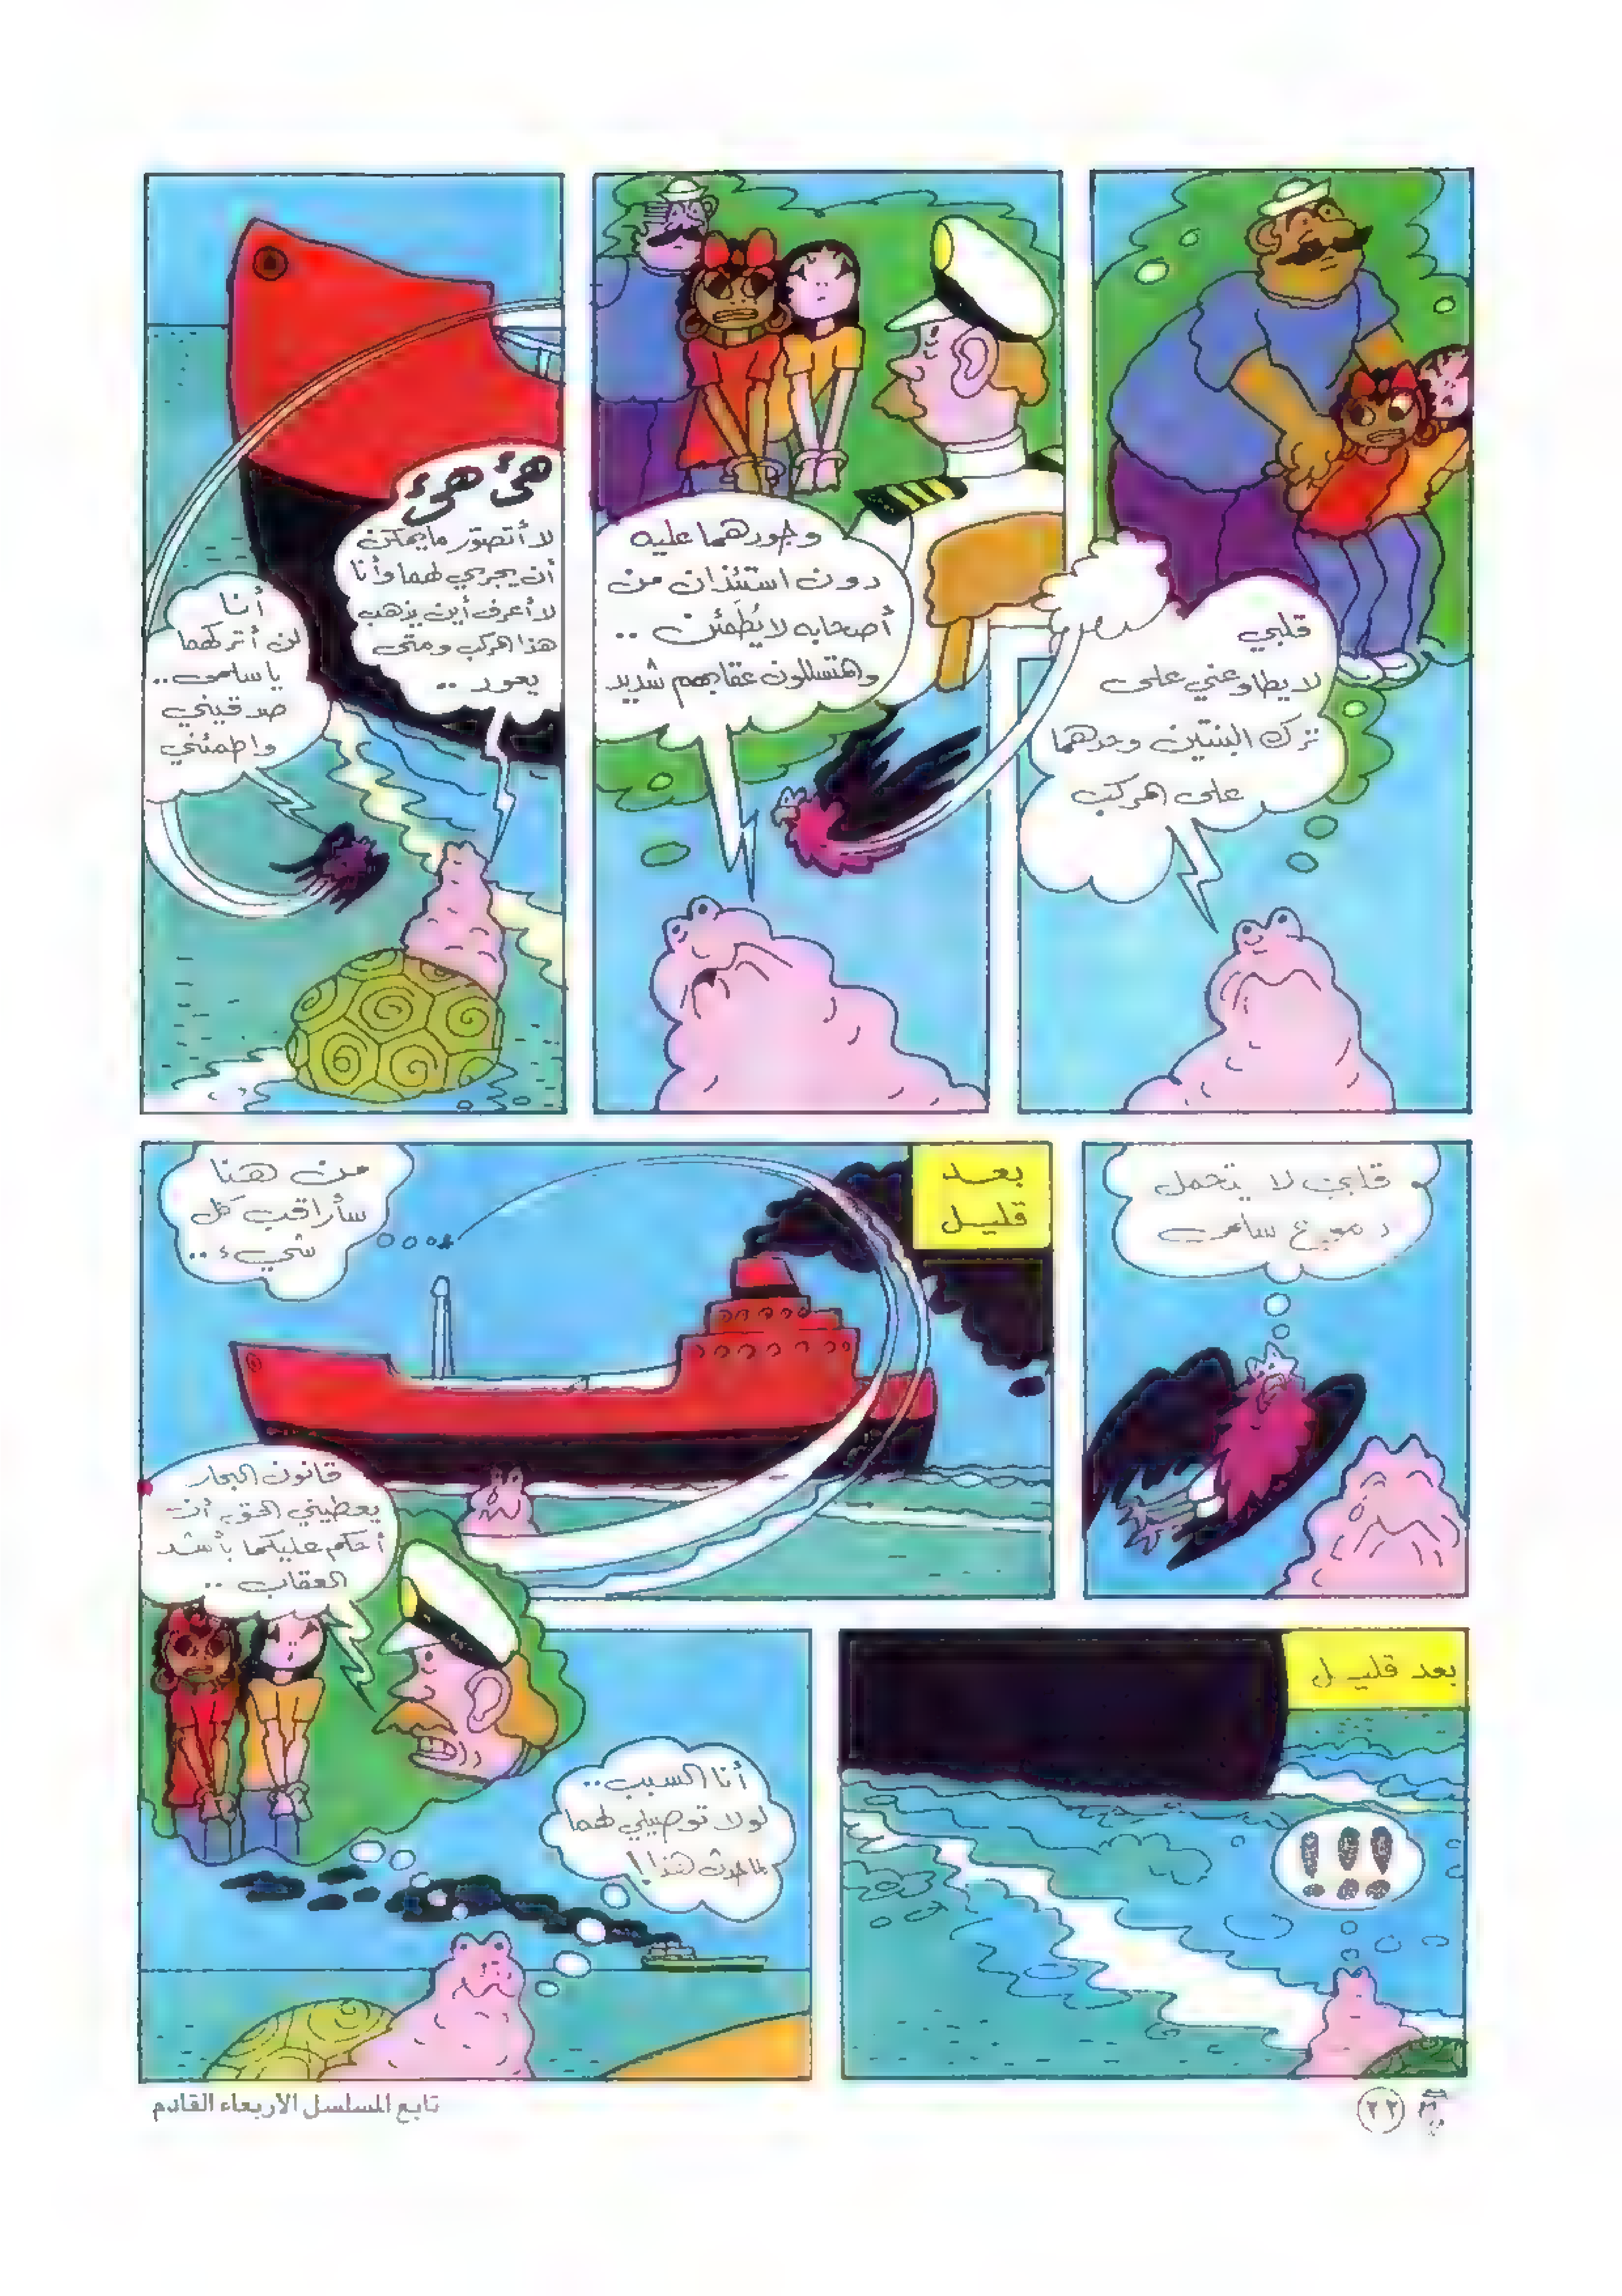 قلبي
لا يطاوعني على
ترك البنتين وحدهما
على المركب
وجودهما عليه
دون استئذان من
أصحابه لا يُطَمئن ..
والمتسللون عقابهم شديد
هئ هئ
لا أتصور ما يمكن
أن يجري لهما وأنا
لا أعرف أين يذهب
هذا المركب ومتى
يعود ..
أنا
لن أتركهما
يا سلمى ..
صدقيني
واطمئني
قلبي لا يتحمل
دموع سلمى
بعد
قليل
من هنا
سأراقب كل
شيء ..
بعد قليل
!!!
قانون البحار
يعطيني الحق أن
أحكم عليكما بأشد
العقاب ..
أنا السبب ..
لولا توصيلي لهما
لما حدث هذا !
٢٢
تابع المسلسل الأربعاء القادم